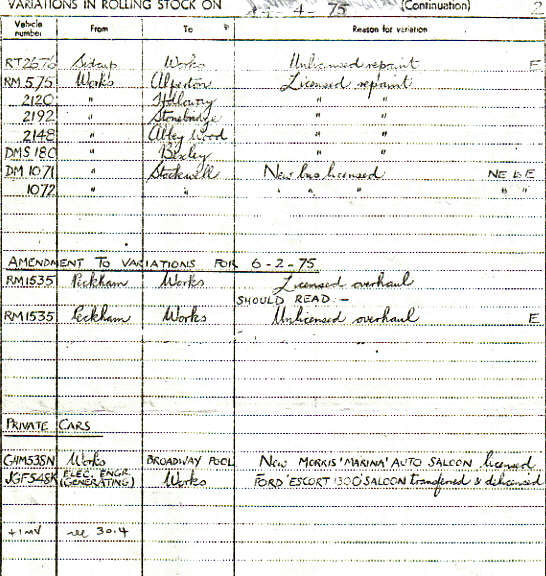 VARIATIONS IN ROLLING STOCK ON 4 - 75 (Continuation) 2
Vehicle number From To Reason for variation
RT2676 Sidcup Works Unlicensed repaint E
RM 575 Works Alperton Licensed repaint
2120 " Holloway " "
2192 " Stonebridge " "
2148 " Abbey Wood " "
DMS 180 " Bexley " "
DM 1071 " Stockwell New bus licensed NE to E
1072 " " " " " " "
AMENDMENT TO VARIATIONS FOR 6-2-75
RM1535 Peckham Works Licensed overhaul
SHOULD READ :-
RM1535 Peckham Works Unlicensed overhaul E
PRIVATE CARS
GHM535N Works BROADWAY POOL NEW MORRIS 'MARINA' AUTO SALOON licensed
JGF548K ELEC. ENGR. (GENERATING) Works FORD 'ESCORT 1300' SALOON transferred & delicensed
+1MV see 30.4